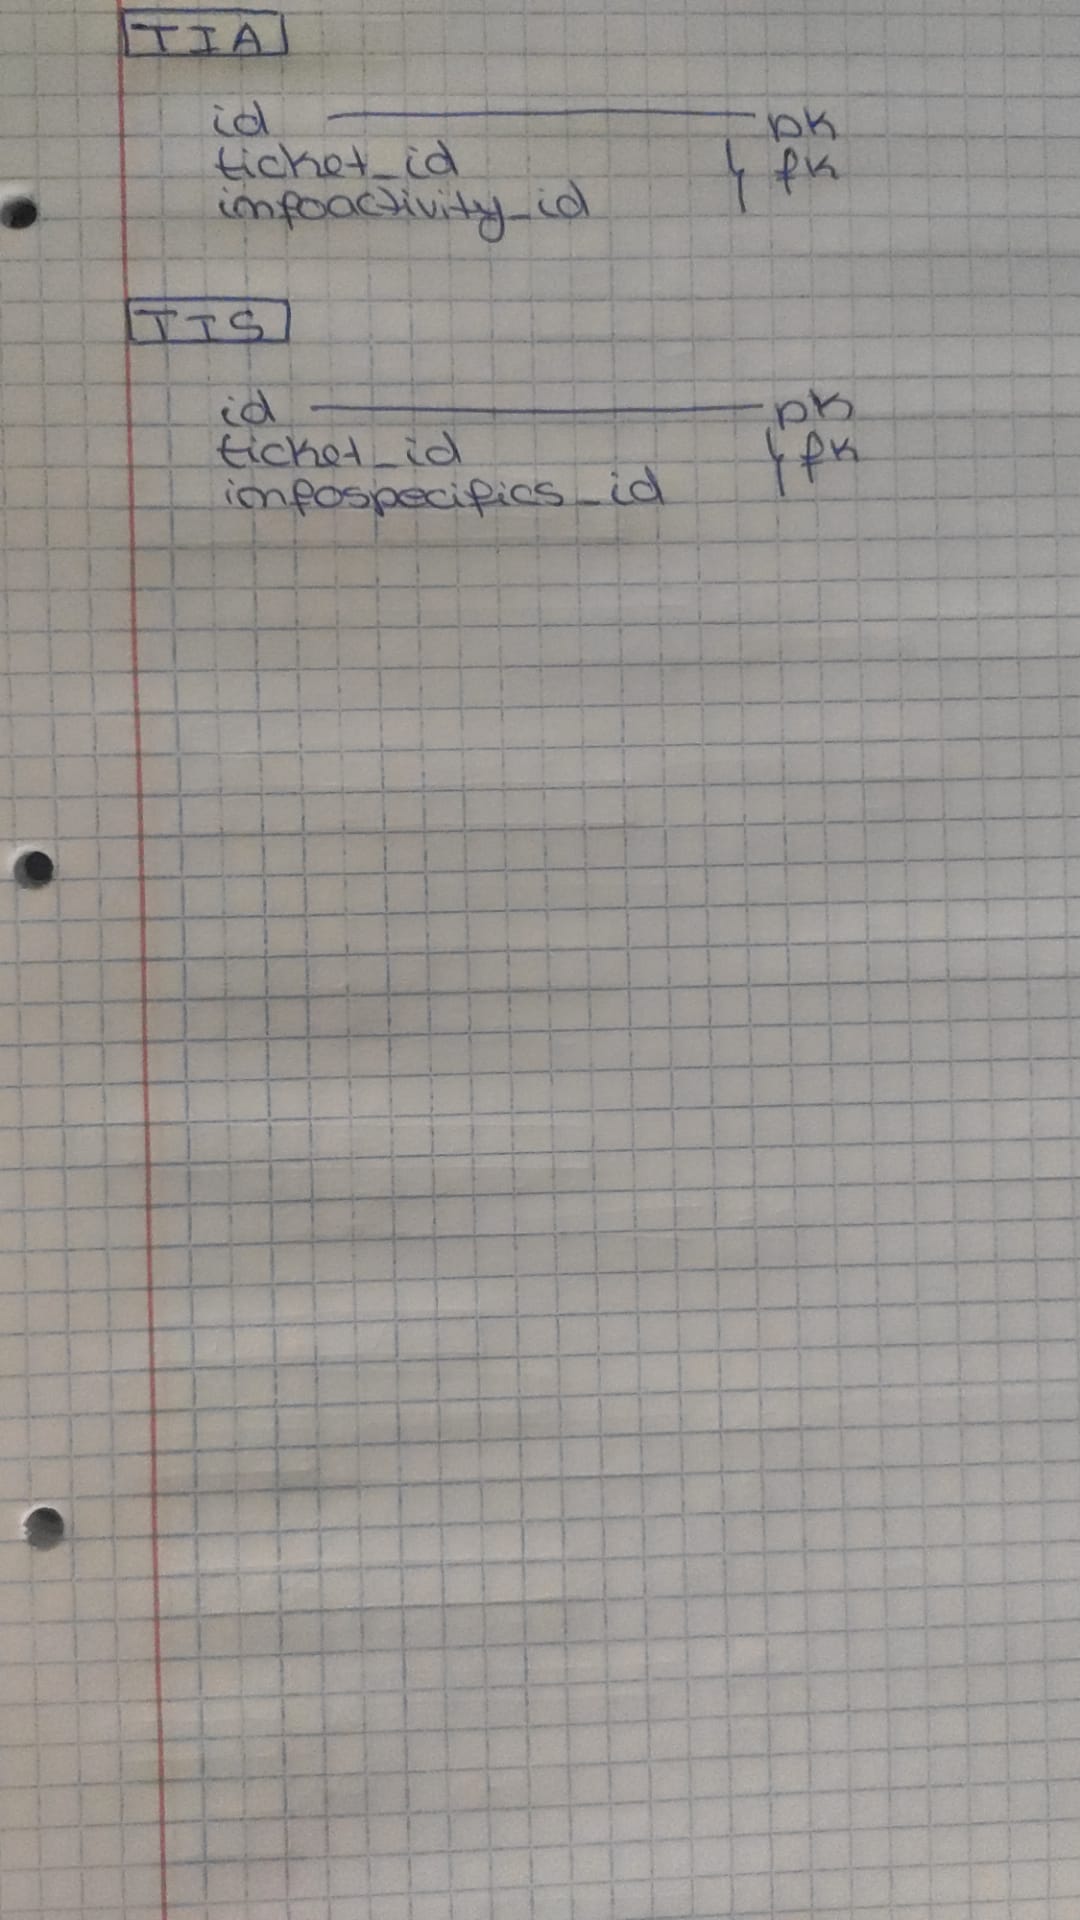 TIA
id — pk
ticket_id } fk
infoactivity_id
TIS
id — pk
ticket_id } fk
infospecifics_id